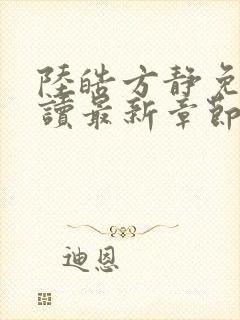 陸皓方靜免
讀最新章節
迪恩